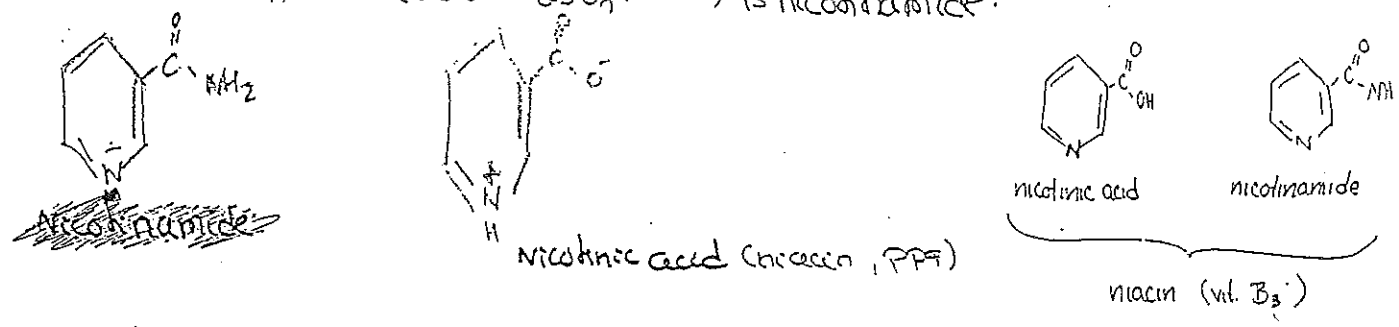 is nicotinamide.
O
C
NH2
N
Nicotinamide
O
C
O-
N+
H
Nicotinic acid (niacin, PP
O
C
OH
N
nicotinic acid
O
C
NH
N
nicotinamide
niacin (vit. B3)